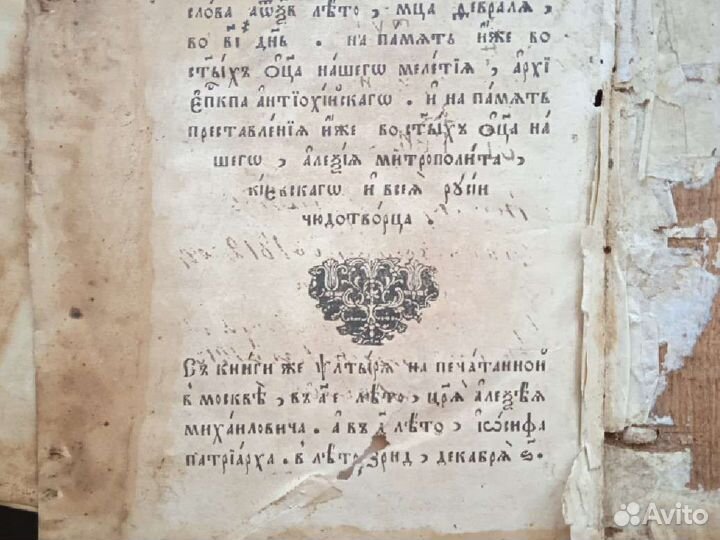 слова аѿзв лѣто, мца февралѧ,
во в҃і дн҃ь . на памѧть и́же во
ст҃ы́хъ ѻц҃а нашегѡ мелетїѧ, архі
єпⷭ҇кпа антїохїйскагѡ . и на памѧть
преставленїѧ и́же во ст҃ы́хъ ѻц҃а на
шегѡ, алеѯїѧ митрополита,
кїевскагѡ и всеѧ русїи
чюдотворца .
Съ книги же ѱлтырѧ на печатанной
в москвѣ, въ а҃е лѣто, цр҃ѧ алеѯѣѧ
михаиловича . а въ д҃ лѣто, іѡсифа
патрїарха . в лѣто зрнд, декабрѧ ѕ҃ .
Avito